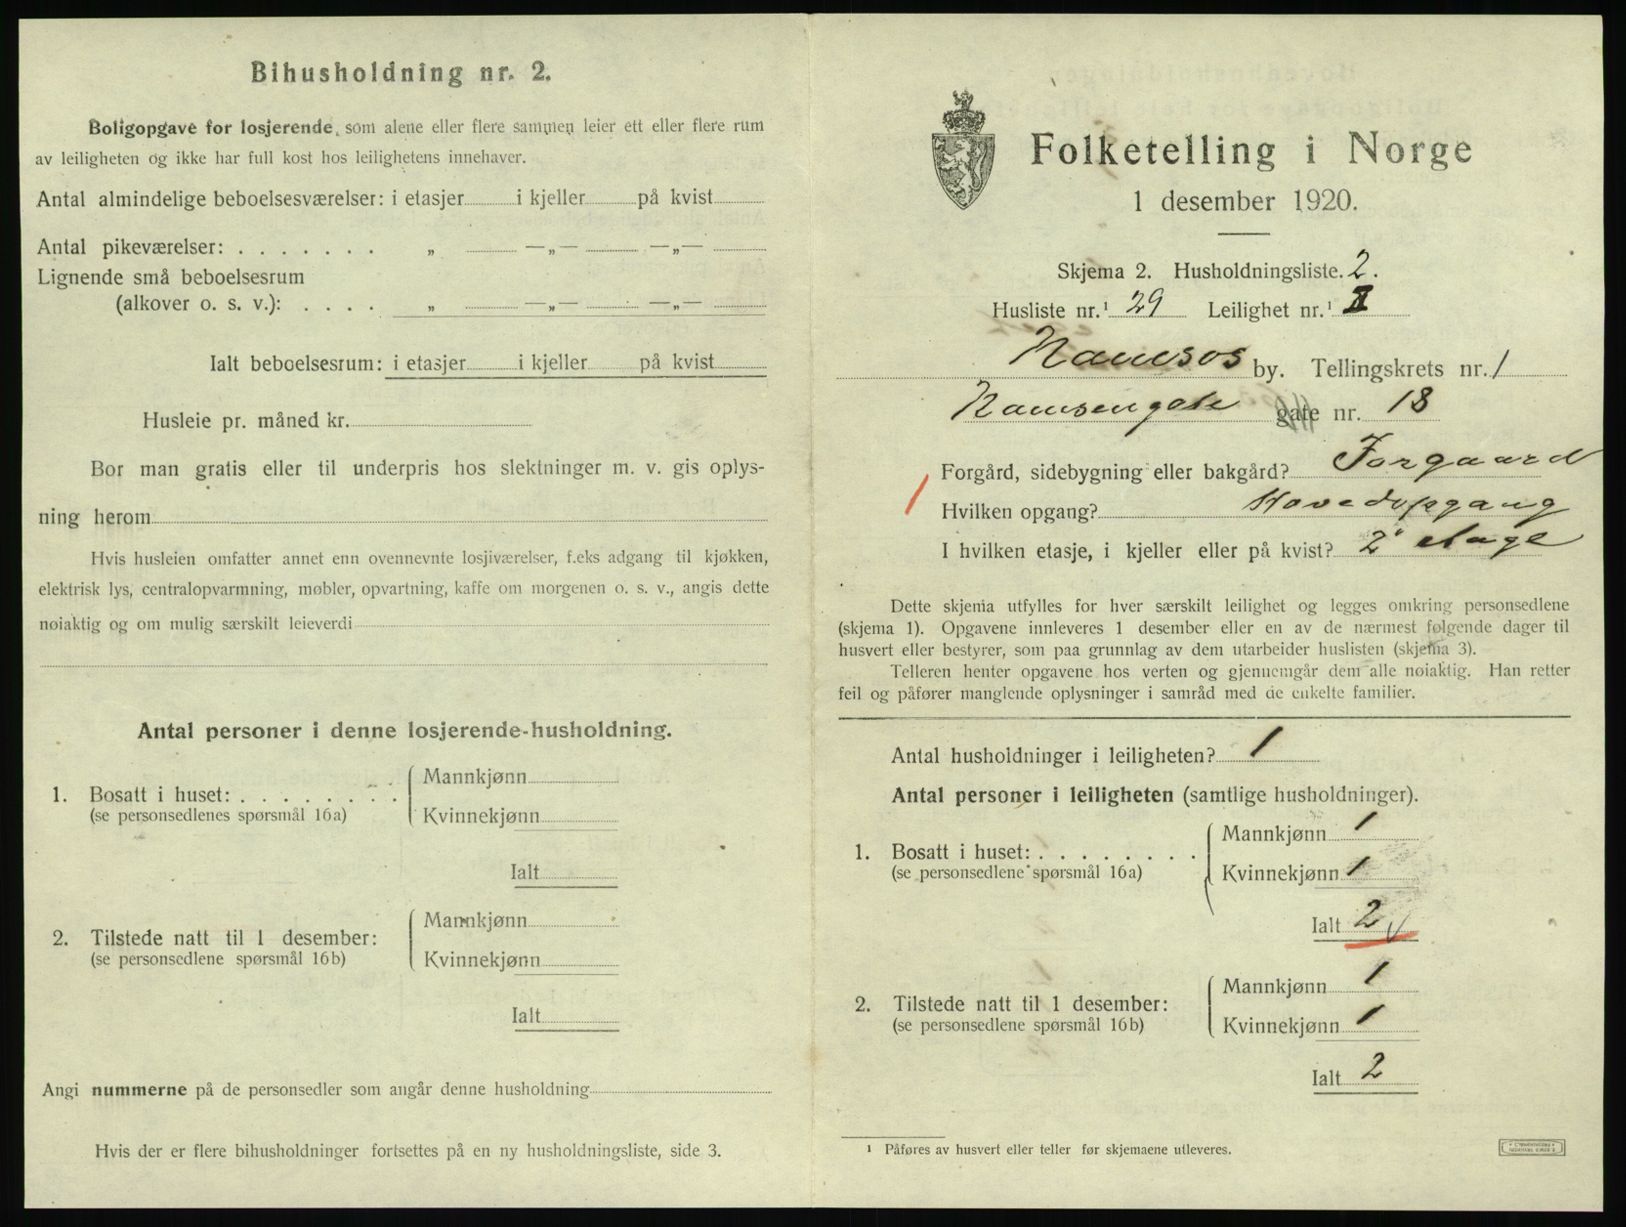 Bihusholdning nr. 2.
Boligopgave for losjerende, som alene eller flere sammen leier ett eller flere rum
av leiligheten og ikke har full kost hos leilighetens innehaver.
Antal almindelige beboelsesværelser: i etasjer i kjeller på kvist
Antal pikeværelser: . . . . . . . „ —„— —„—
Lignende små beboelsesrum
(alkover o. s. v.): . . . . „ —„— —„—
Ialt beboelsesrum: i etasjer i kjeller på kvist
Husleie pr. måned kr.
Bor man gratis eller til underpris hos slektninger m. v. gis oplys-
ning herom
Hvis husleien omfatter annet enn ovennevnte losjiværelser, f.eks adgang til kjøkken,
elektrisk lys, centralopvarmning, møbler, opvartning, kaffe om morgenen o. s. v., angis dette
nøiaktig og om mulig særskilt leieverdi
Antal personer i denne losjerende-husholdning.
1. Bosatt i huset: . . . . . . . .
(se personsedlenes spørsmål 16a)
Mannkjønn
Kvinnekjønn
Ialt
2. Tilstede natt til 1 desember:
(se personsedlene spørsmål 16b)
Mannkjønn
Kvinnekjønn
Ialt
Angi nummerne på de personsedler som angår denne husholdning
Hvis der er flere bihusholdninger fortsettes på en ny husholdningsliste, side 3.
Folketelling i Norge
1 desember 1920.
Skjema 2. Husholdningsliste. 2.
Husliste nr.¹ 29 Leilighet nr.¹ 2
Namsos by. Tellingskrets nr. 1
Namsengate gate nr. 18
Forgård, sidebygning eller bakgård? Forgaard
1
Hvilken opgang? Hovedopgang
I hvilken etasje, i kjeller eller på kvist? 2' etage
Dette skjema utfylles for hver særskilt leilighet og legges omkring personsedlene
(skjema 1). Opgavene innleveres 1 desember eller en av de nærmest følgende dager til
husvert eller bestyrer, som paa grunnlag av dem utarbeider huslisten (skjema 3).
Telleren henter opgavene hos verten og gjennemgår dem alle nøiaktig. Han retter
feil og påfører manglende oplysninger i samråd med de enkelte familier.
Antal husholdninger i leiligheten? 1
Antal personer i leiligheten (samtlige husholdninger).
1. Bosatt i huset: . . . . . . . .
(se personsedlene spørsmål 16a)
Mannkjønn 1
Kvinnekjønn 1
Ialt 2
2. Tilstede natt til 1 desember:
(se personsedlene spørsmål 16b)
Mannkjønn 1
Kvinnekjønn 1
Ialt 2
¹ Påføres av husvert eller teller før skjemaene utleveres.